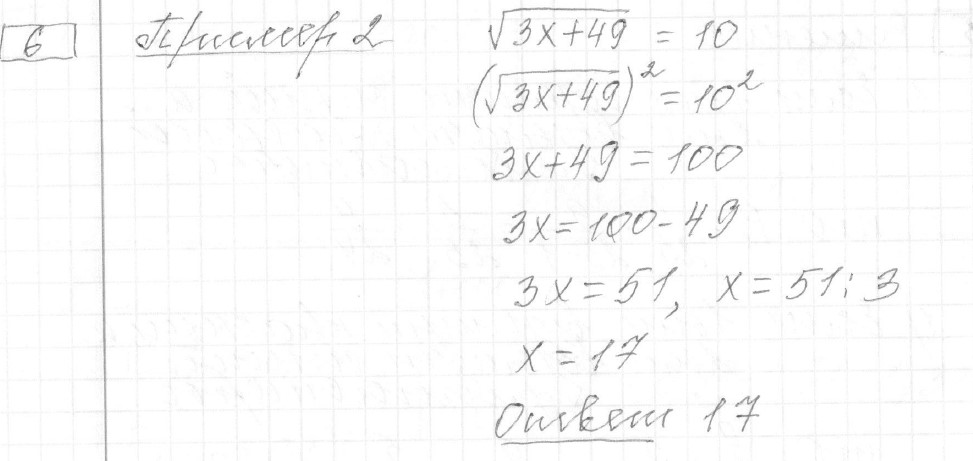 6 Пример 2 √3x+49 = 10
(√3x+49)² = 10²
3x+49 = 100
3x = 100 - 49
3x = 51, x = 51 : 3
x = 17
Ответ 17